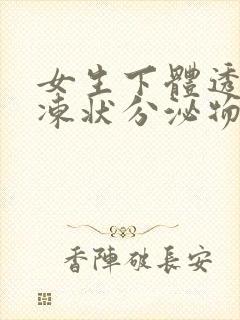 女生下體透
凍狀分泌物
香陣破長安